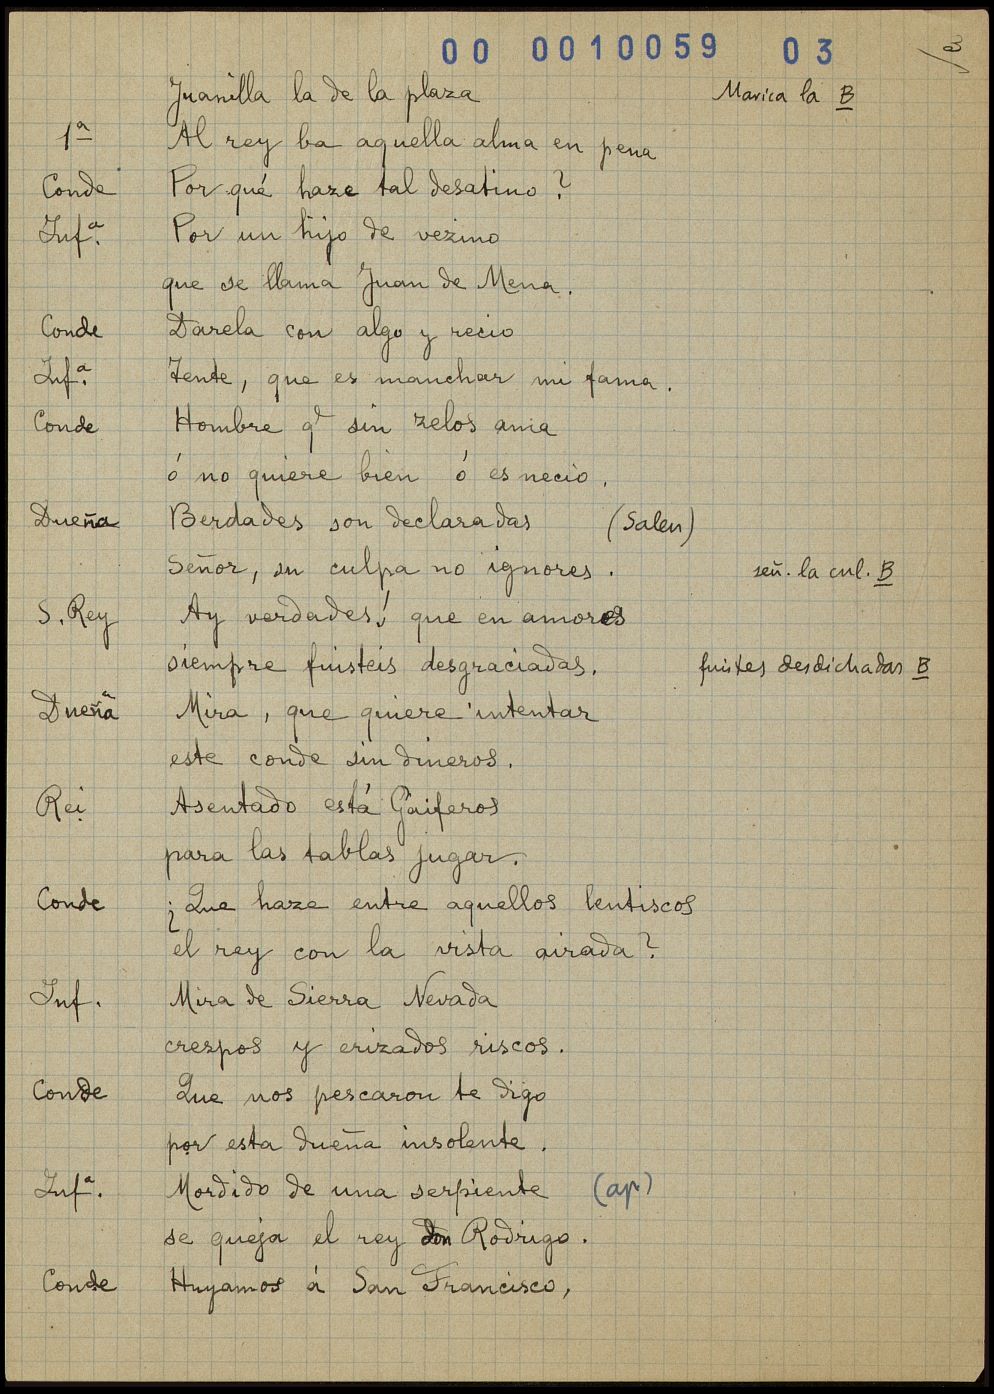 00 0010059 03
Juanilla la de la plaza Marica la B
1ª Al rey ba aquella alma en pena
Conde Por qué haze tal desatino?
Infª. Por un hijo de vezino
que se llama Juan de Mena.
Conde Darela con algo y recio
Infª. Tente, que es manchar mi fama.
Conde Hombre q͏̄ sin zelos ama
ó no quiere bien ó es necio.
Dueña Berdades son declaradas (Salen)
Señor, su culpa no ignores. señ. la cul. B
S. Rey Ay verdades! que en amores
siempre fuisteis desgraciadas. fuistes desdichadas B
Dueña Mira, que quiere intentar
este conde sin dineros.
Rei Asentado está Gaiferos
para las tablas jugar.
Conde ¿Que haze entre aquellos lentiscos
el rey con la vista airada?
Inf. Mira de Sierra Nevada
crespos y erizados riscos.
Conde Que nos pescaron te digo
por esta dueña insolente.
Infª. Mordido de una serpiente (ap)
se queja el rey don Rodrigo.
Conde Huyamos á San Francisco,